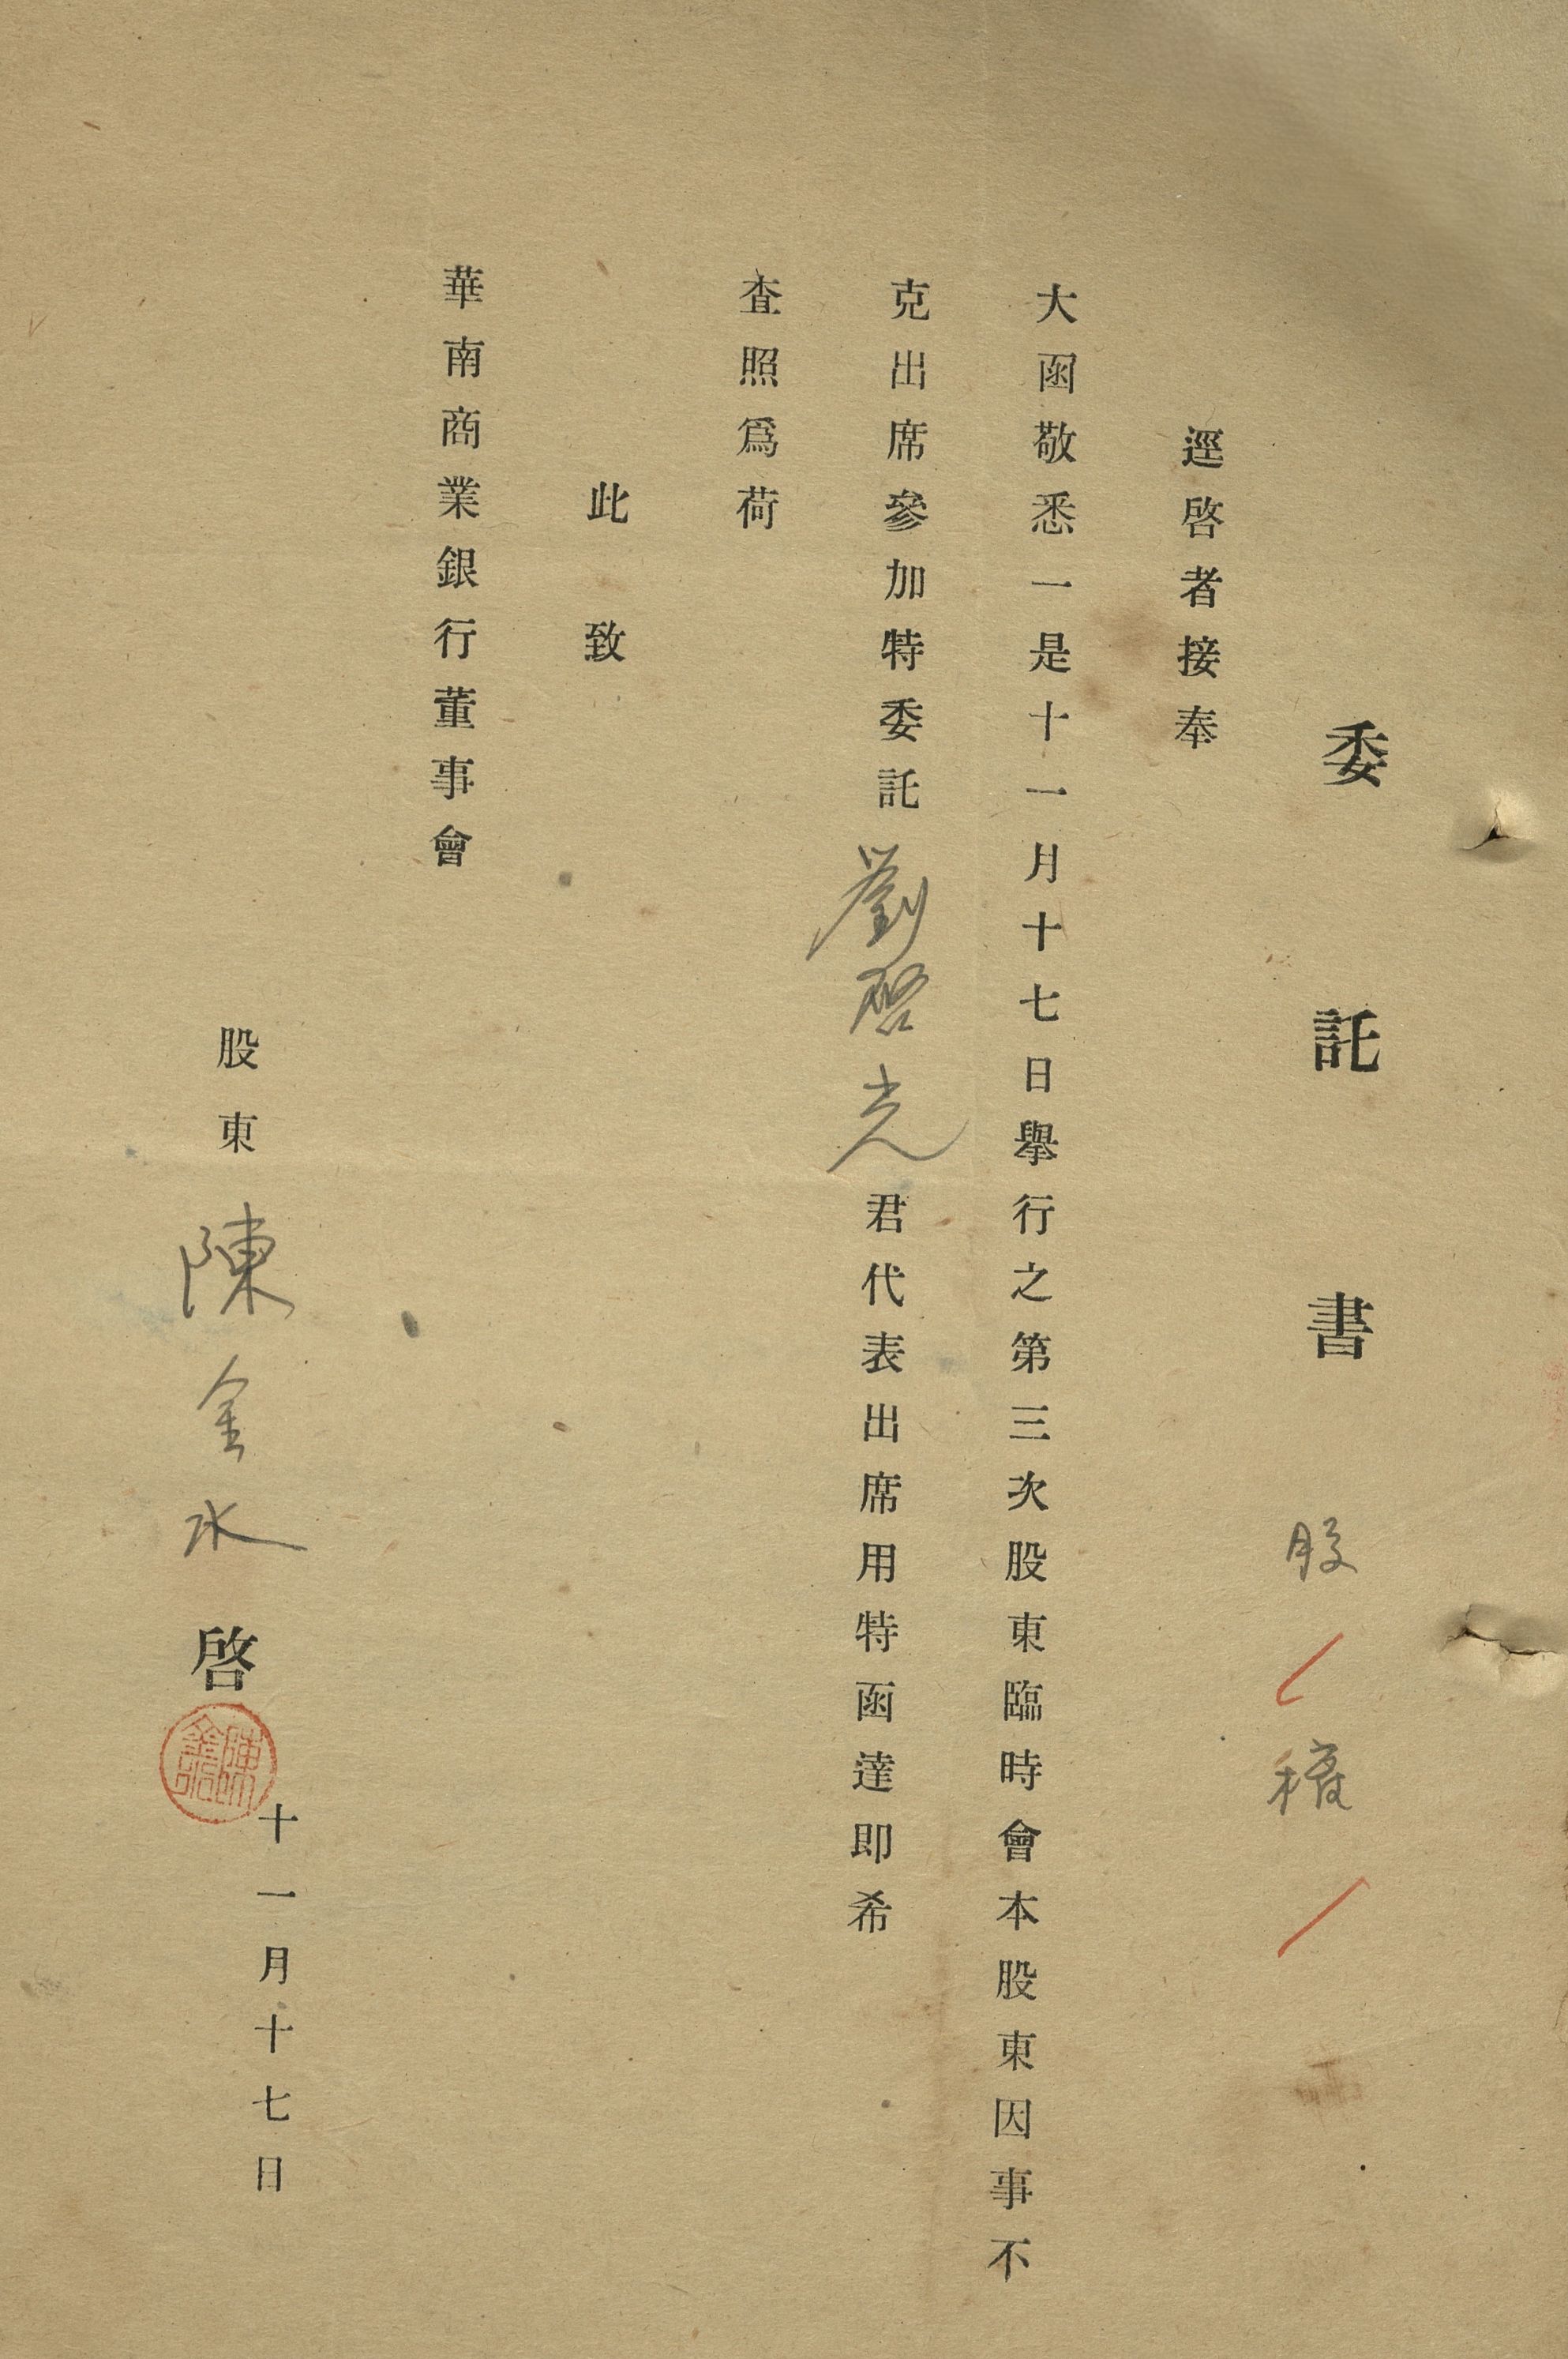 委託書 股 權
逕啓者接奉
大函敬悉一是十一月十七日舉行之第三次股東臨時會本股東因事不
克出席參加特委託劉啓光君代表出席用特函達即希
査照爲荷
此致
華南商業銀行董事會
股東 陳金水 啓
十一月十七日